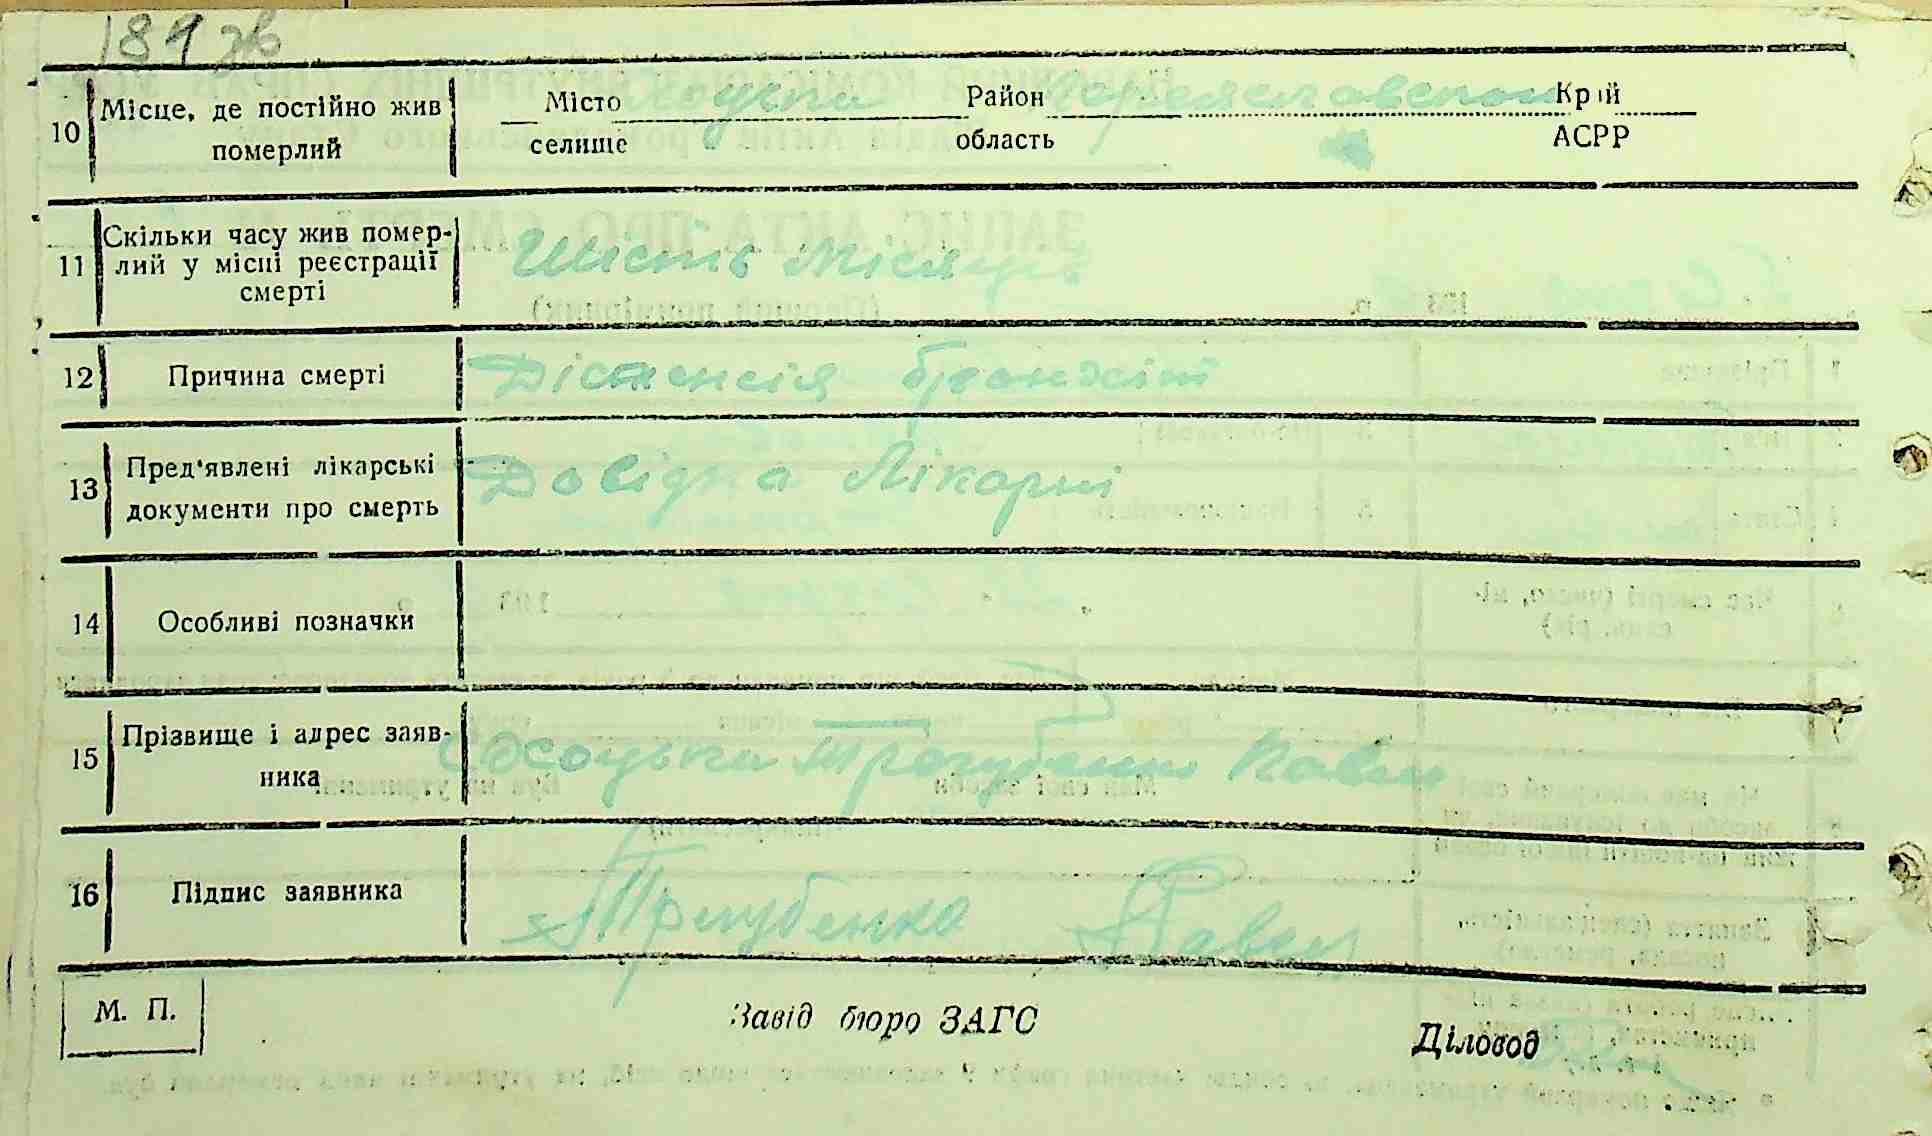 189 зв
10 Місце, де постійно жив померлий Місто селище Район область Переяславской Крій АСРР
11 Скільки часу жив помер-
лий у місці реєстрації
смерті Шість Місяців
12 Причина смерті Дістенсія бронхіт
13 Пред'явлені лікарські
документи про смерть Довідка Лікарні
14 Особливі позначки
15 Прізвище і адрес заяв-
ника Трегубенко Павел
16 Підпис заявника Трегубенко Павел
М. П. Завід бюро ЗАГС Діловод